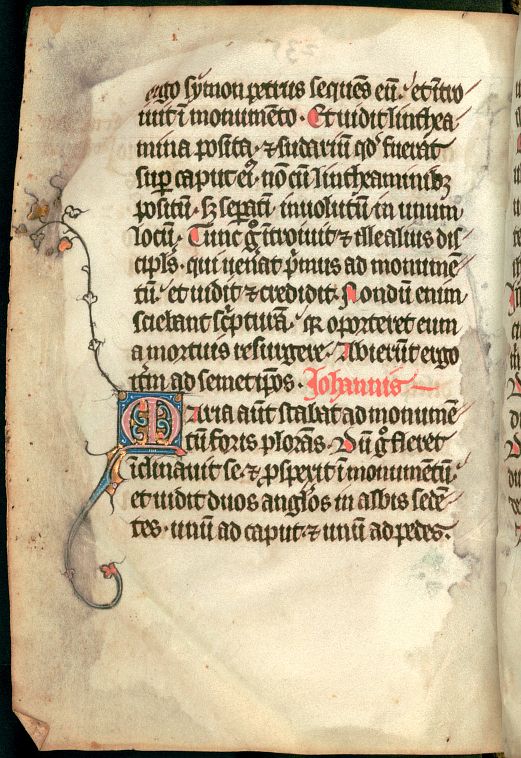 ergo symon petrus sequēs eū. et ītro
iuit ī monumēto. Et uidit linthea
mina posita. ⁊ sudariū qđ fuerat
sup caput ei᷒. nō cū lintheaminibꝫ
positū. sꝫ sepatī inuolutū in unum
locū. Tunc gͦ ītroiuit ⁊ ille alius dis
cipls. qui uenat pͥmus ad monumē
tū. et uidit ⁊ credidit. Nondū enim
sciebant scͥpturā. qꝛ oporteret eum
a mortuis resurgere. Abierūt ergo
itm̄ ad semetip̄os. Johannis
Maria aūt stabat ad monumē
tū foris plorās. Dū gͦ fleret
īclinauit se. ⁊ pspexit ī monumētū.
et uidit duos angl̄os in albis sedē
tes. unū ad caput. ⁊ unū ad pedes.